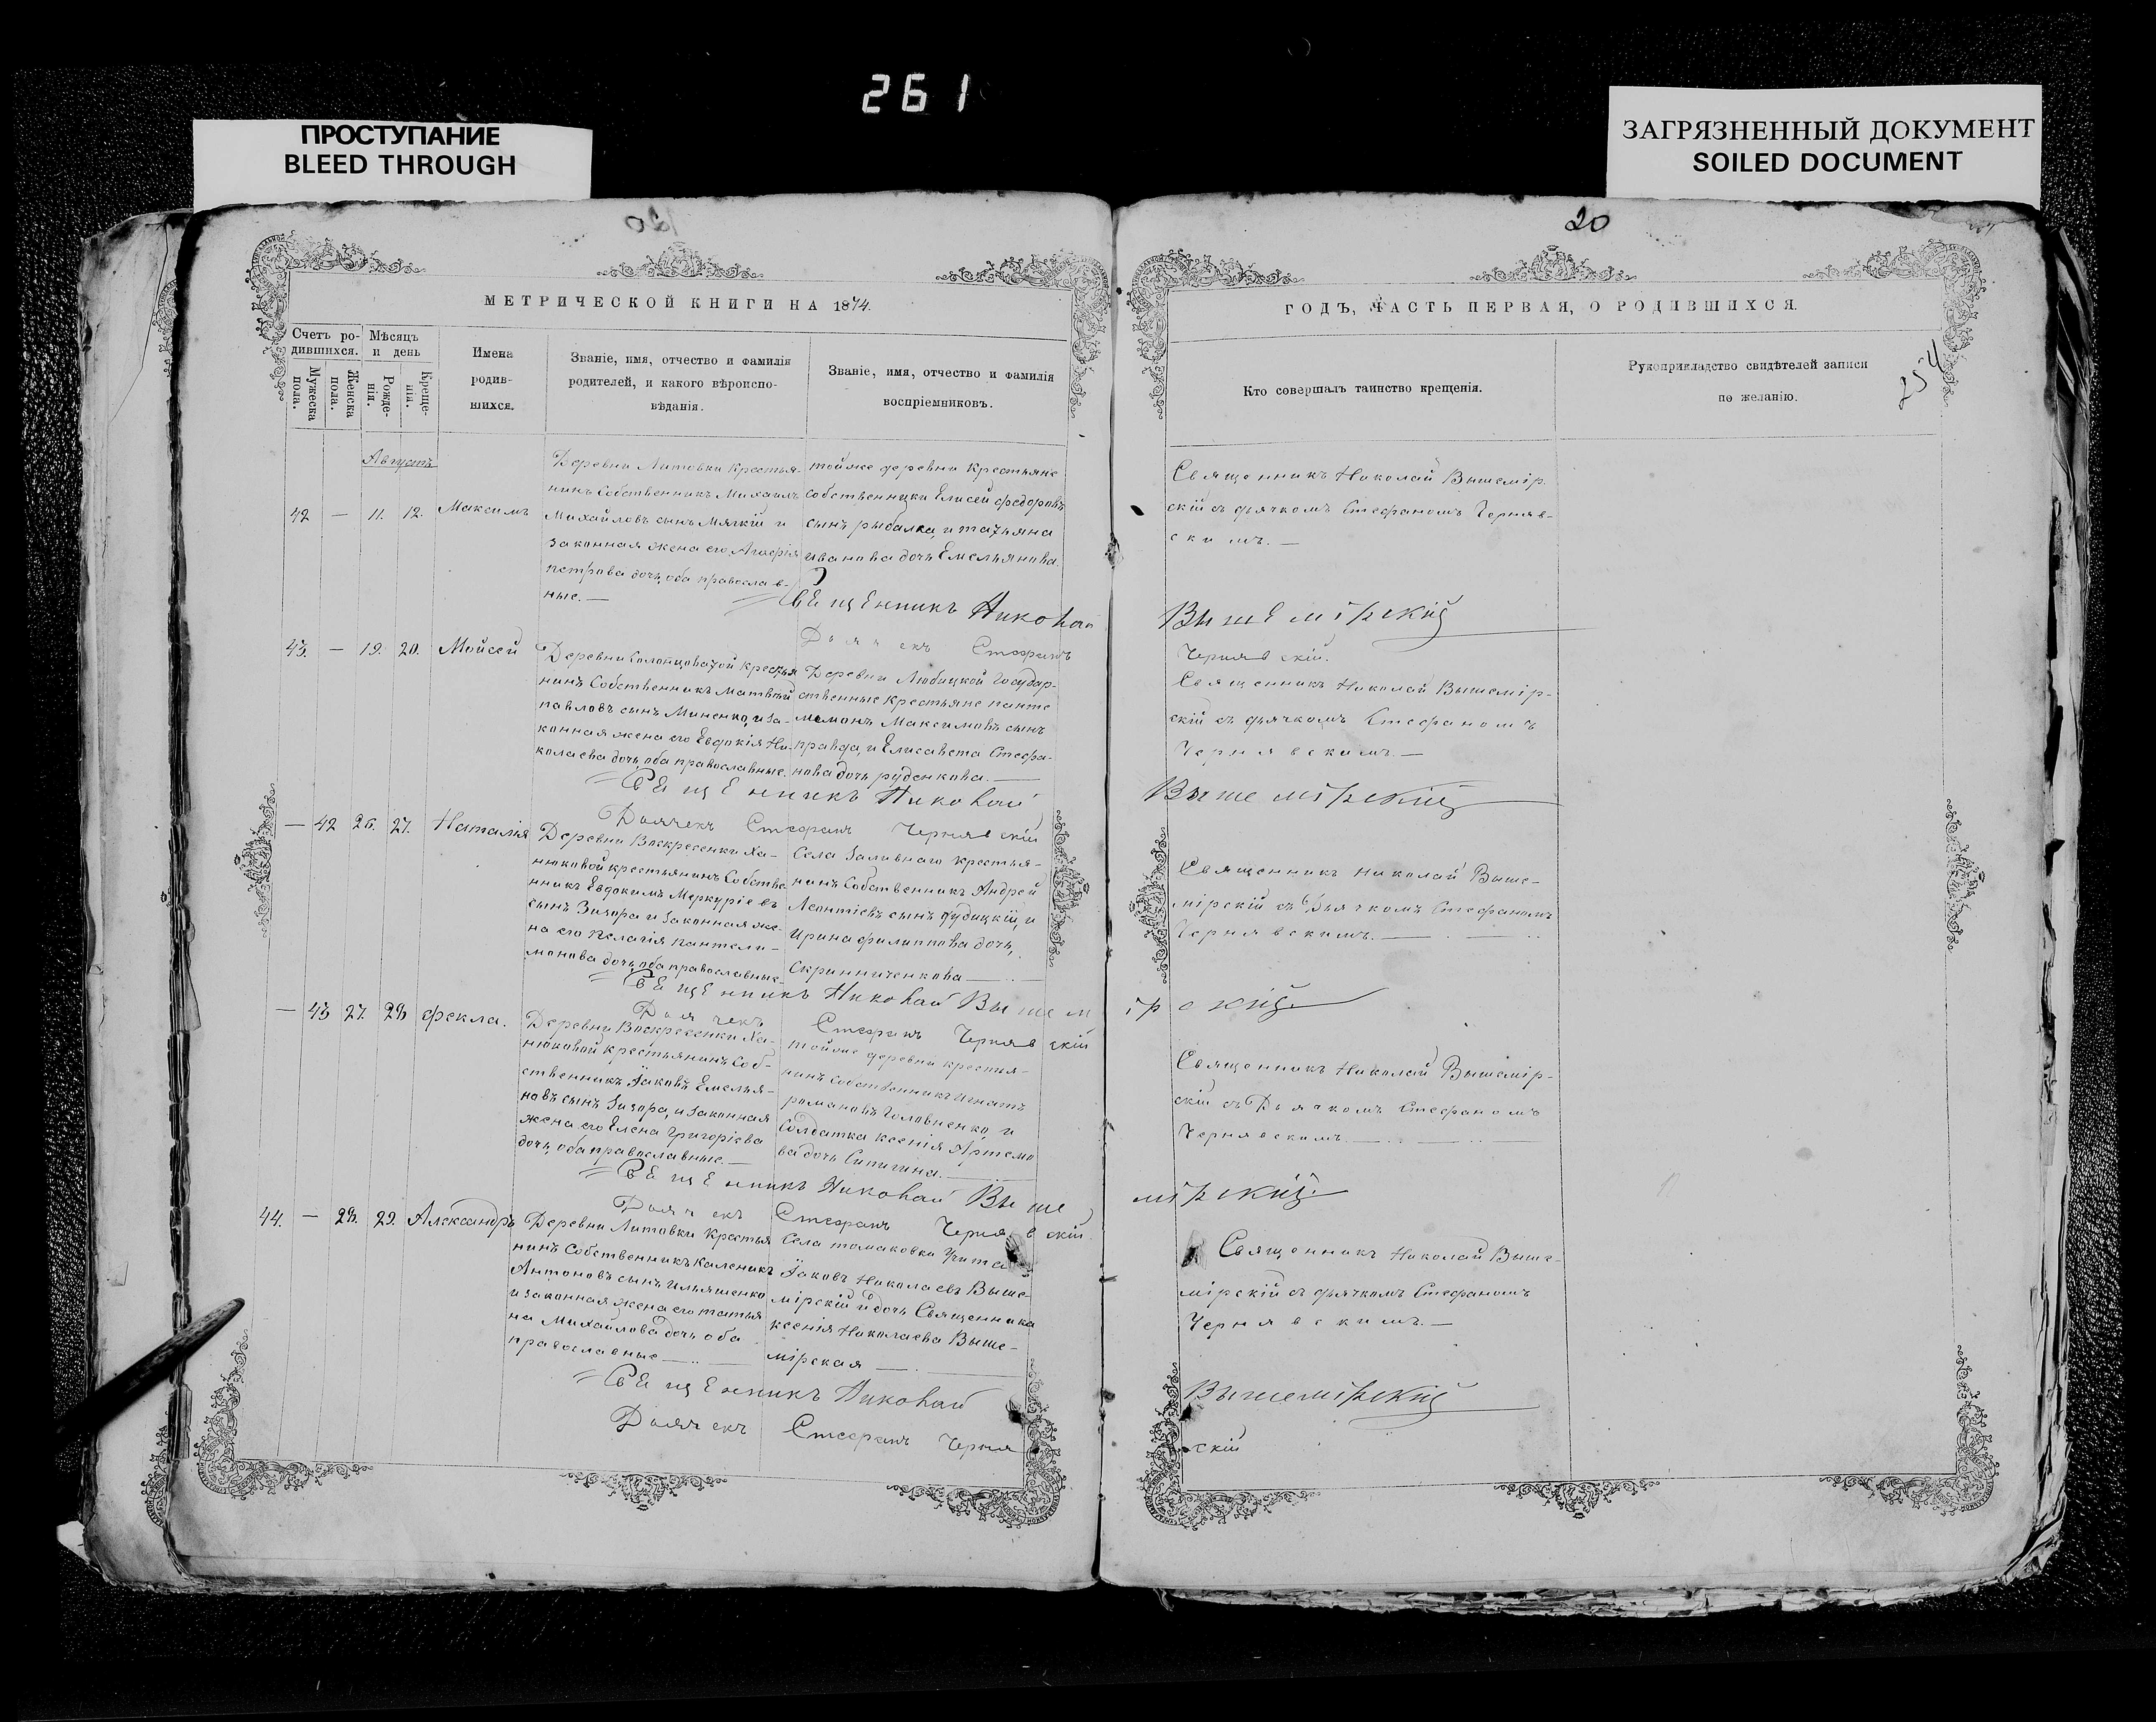 261
ПРОСТУПАНИЕ
BLEED THROUGH
ЗАГРЯЗНЕННЫЙ ДОКУМЕНТ
SOILED DOCUMENT
20
254
МЕТРИЧЕСКОЙ КНИГИ НА 1874.
ГОДЪ, ЧАСТЬ ПЕРВАЯ, О РОДИВШИХСЯ.
Счетъ ро-
дившихся.
Мужеска
пола.
Женска
пола.
Мѣсяцъ
и день
Рожде-
нія.
Креще-
нія.
Имена
родив-
шихся.
Званіе, имя, отчество и фамилія
родителей, и какого вѣроиспо-
вѣданія.
Званіе, имя, отчество и фамилія
воспріемниковъ.
Кто совершалъ таинство крещенія.
Рукоприкладство свидѣтелей записи
по желанію.
Августъ
42 — 11. 12. Максимъ
Деревни Литовки крестья-
нинъ Собственникъ Михаилъ
Михайловъ сынъ Мягкій и
законная жена его Агафія
петрова дочь, оба православ-
ные. —
тойже деревни крестьяне
собственники Елисей федоровъ
сынъ рыбалка, и татьяна
иванова дочь Емельянова.
Священникъ Николай Вышемір-
скій съ дьячкомъ Стефаномъ Черняв-
скимъ. —
Священникъ Николай Вышемірскій
Дьячекъ Стефанъ Чернявскій.
43. — 19. 20. Мойсей
Деревни Солонцоватой крестья
нинъ Собственникъ Матвѣй
павловъ сынъ Миненко, и за-
конная жена его Евдокія Ни-
колаева дочь, оба православные.
Деревни Любицкой Государ-
ственные крестьяне панте
лемонъ Максимовъ сынъ
правда, и Елисавета Стефа-
нова дочь руденкова. —
Священникъ Николай Вышемір-
скій съ дьячкомъ Стефаномъ
Чернявскимъ. —
Священникъ Николай Вышемірскій
Дьячекъ Стефанъ Чернявскій
— 42 26. 27. Наталія
Деревни Воскресенки Ха-
нюковой крестьянинъ Собстве
нникъ Евдокимъ Меркуріевъ
сынъ Зизора и законная же-
на его пелагія пантели-
монова дочь, оба православные
Села Заливнаго крестья-
нинъ Собственникъ Андрей
Леонтіевъ сынъ дудицкій, и
ирина филиппова дочь,
Скринниченкова —
Священникъ Николай Выше-
мірскій съ Дьячкомъ Стефаномъ
Чернявскимъ. —
Священникъ Николай Вышемірскій.
Дьячекъ Стефанъ Чернявскій
— 43 27. 28 Фекла.
Деревни Воскресенки Ха-
нюковой крестьянинъ Соб-
ственникъ Іаковъ Емелья-
новъ сынъ Зизора, и законная
жена его Елена Григоріева
дочь, оба православные. —
тойже деревни крестья-
нинъ собственникъ игнатъ
романовъ Головненко, и
Солдатка ксенія Артемо
ва дочь Сипигина. —
Священникъ Николай Вышемір-
скій съ Дьячкомъ Стефаномъ
Чернявскомъ —
Священникъ Николай Вышемірскій.
Дьячекъ Стефанъ Чернявскій.
44. — 28. 29. Александръ
Деревни Литовки крестья
нинъ Собственникъ Каленикъ
Антоновъ сынъ ильяшенко
и законная жена его татья
на Михайлова дочь оба
православные —
Села томаковки Учите
Іаковъ Николаевъ Выше-
мірскій и дочь Священника
ксенія Николаева Выше-
мірская —
Священникъ Николай Выше-
мірскій съ дьячкомъ Стефаномъ
Чернявскимъ. —
Священникъ Николай Вышемірскій
Дьячекъ Стефанъ Черня скій